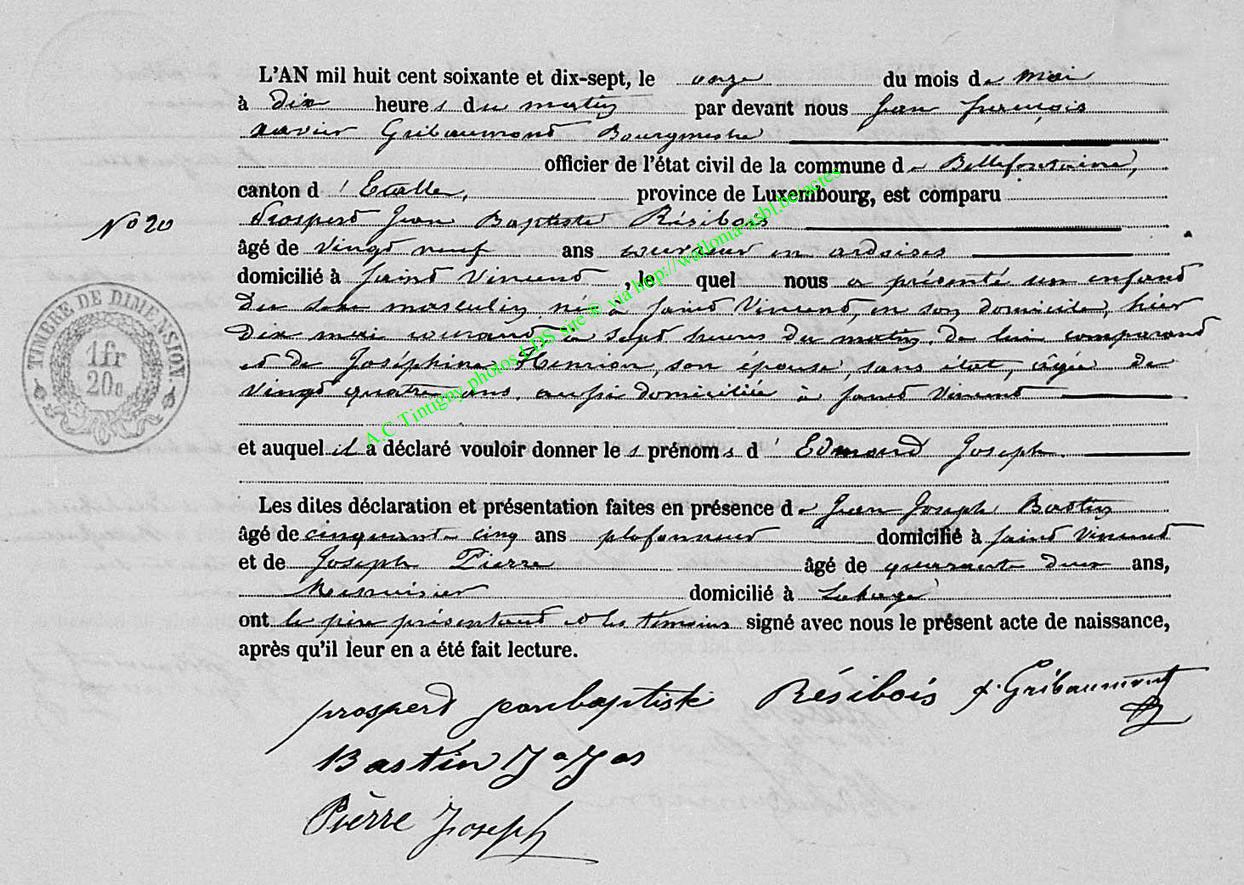 L'AN mil huit cent soixante et dix-sept, le onze du mois de mai
à dix heures du matin par devant nous Jean François
Xavier Gribaumont Bourgmestre
officier de l'état civil de la commune de Bellefontaine,
canton d'Etalle, province de Luxembourg, est comparu
No 20
Prosperd Jean Baptiste Résibois
âgé de vingt neuf ans ouvrier en ardoises
domicilié à Saint Vincent, lequel nous a présenté un enfant
du sexe masculin, né à Saint Vincent, en son domicile, hier
dix mai courant à sept heures du matin, de lui comparant
et de Joséphine Henrion, son épouse, sans état, âgée de
vingt quatre ans, aussi domiciliée à Saint Vincent
et auquel il a déclaré vouloir donner les prénoms d'Edmond Joseph.
Les dites déclaration et présentation faites en présence de Jean Joseph Bastin
âgé de cinquante cinq ans plafonneur domicilié à Saint Vincent
et de Joseph Pierre âgé de quarante deux ans,
Menuisier domicilié à Lahage
ont le père présentant et les témoins signé avec nous le présent acte de naissance,
après qu'il leur en a été fait lecture.
prosperd jean baptiste Résibois f. Gribaumont
Bastin J a Jos
Pierre Joseph
TIMBRE DE DIMENSION
1 fr
20c
A.C Tintigny photos LDS site ® via http://wallonia-asbl.be/actes